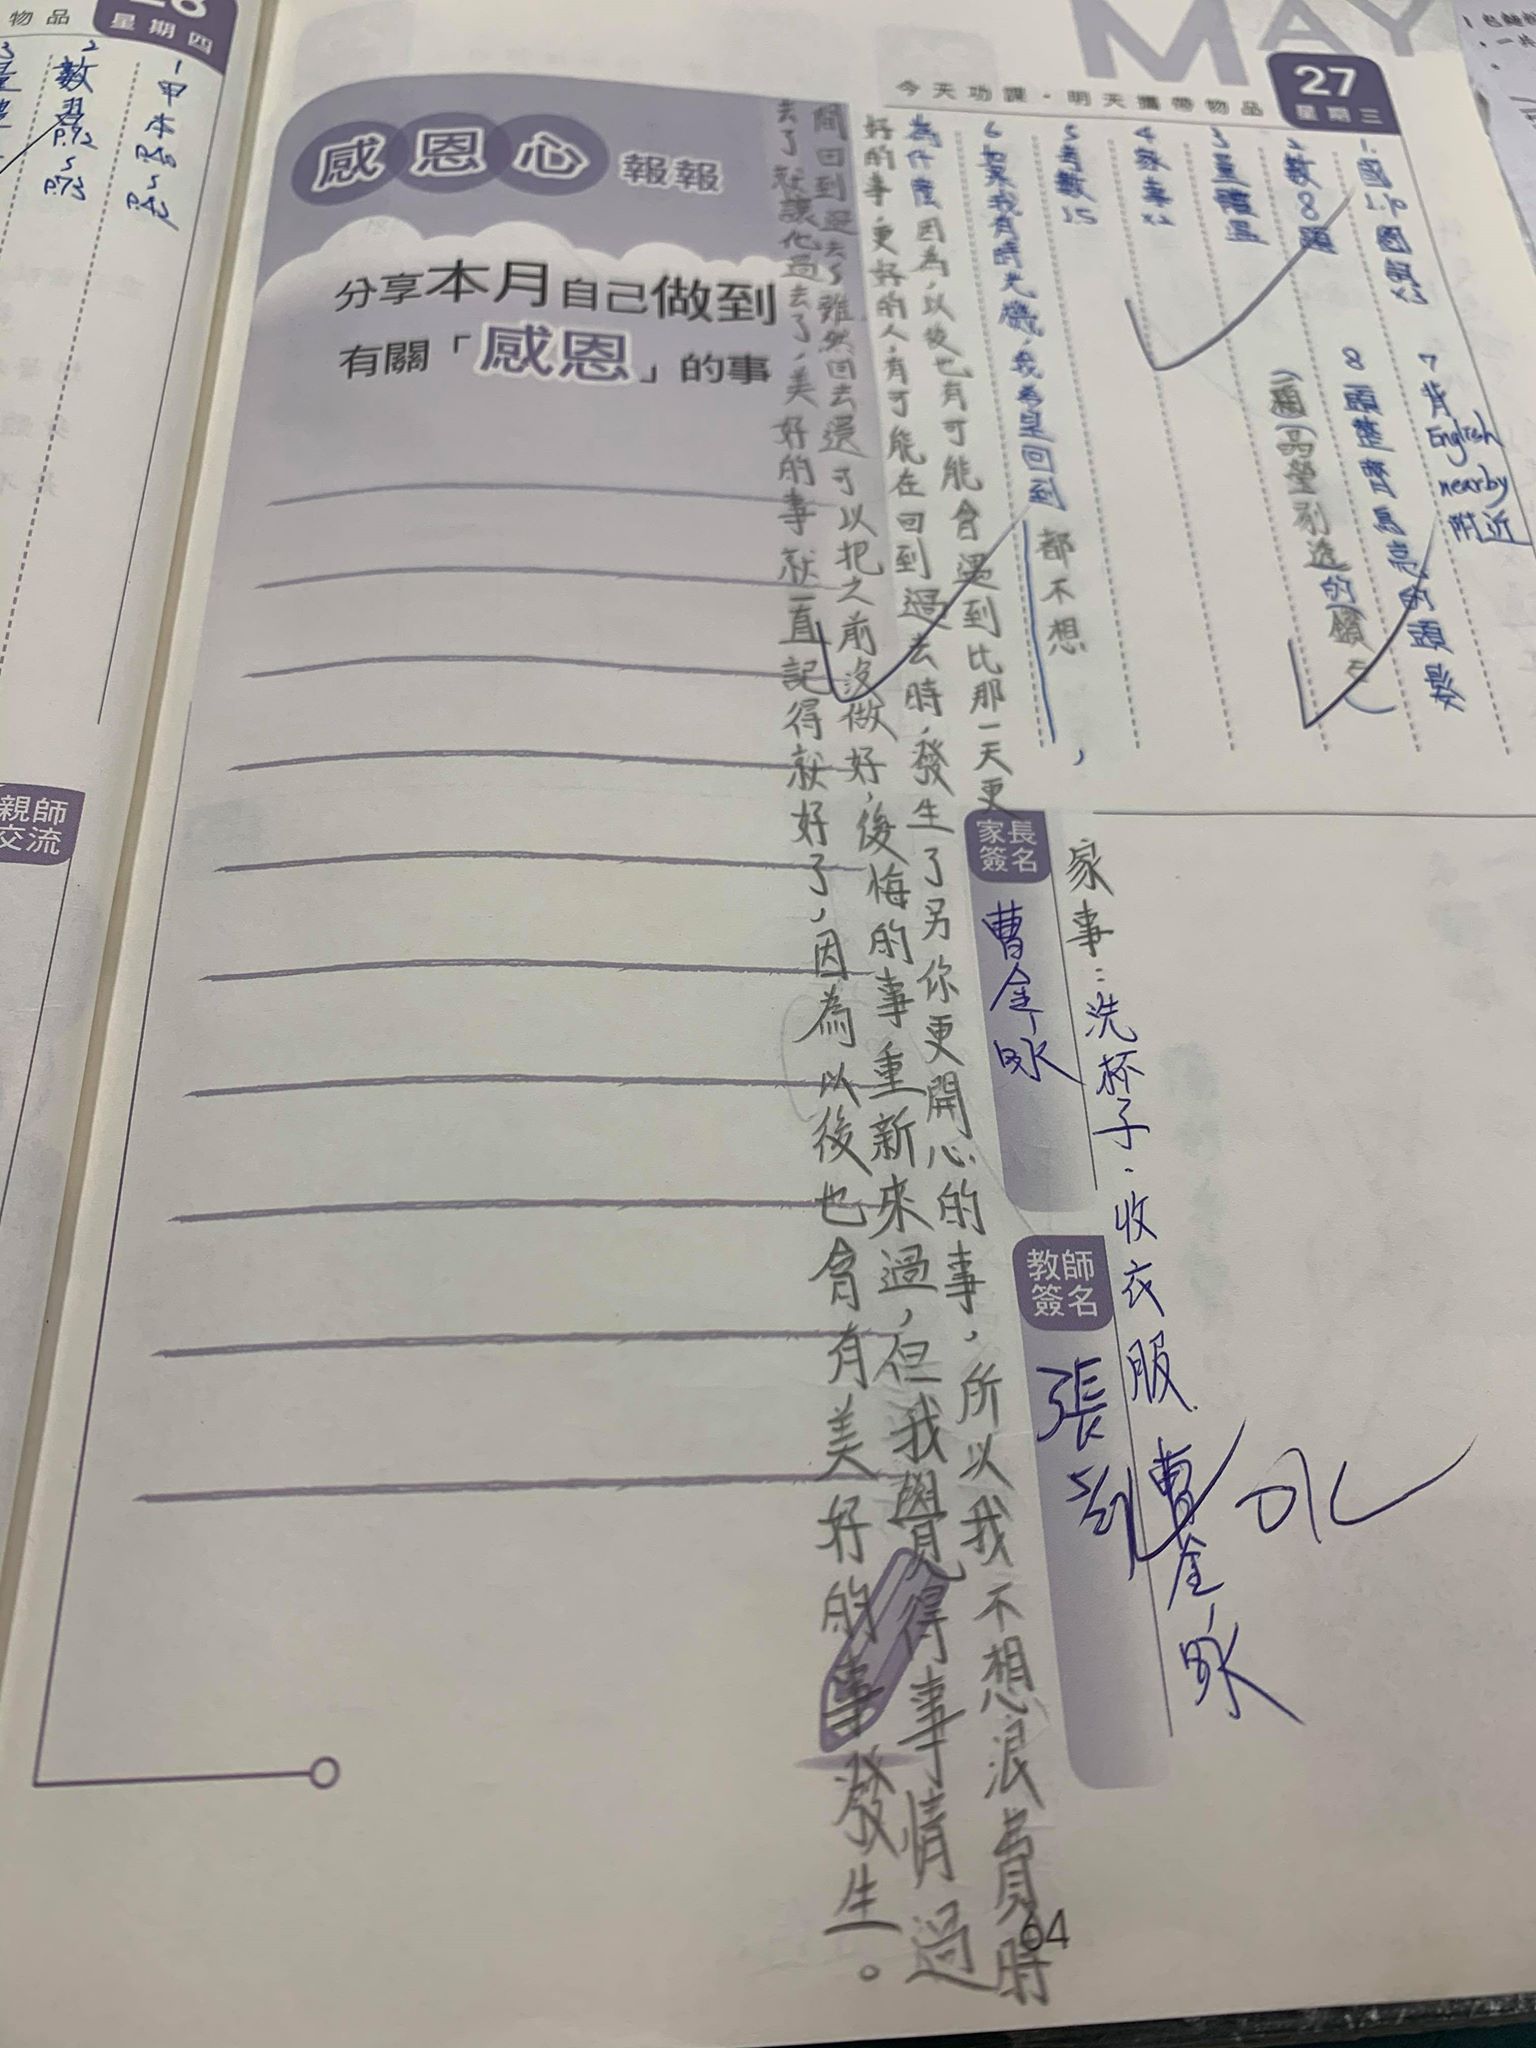 MAY
27
星期三
今天功課·明天攜帶物品
1.國
2.數8題
3量體溫
4家事x2
5背數15
6如果我有時光機,我希望回到都不想,
7背English nearby 附近
8頭整齊烏亮的頭髮
為什麼因為,以後也有可能會遇到比那一天更
好的事,更好的人,有可能在回到過去時,發生了另你更開心的事,所以我不想浪費時
間回到過去了雖然回去還可以把之前沒做好,後悔的事重新來過,但我覺得事情過
去了就讓他過去了,美好的事就一直記得就好了,因為以後也會有美好的事發生。
家長簽名
曹金咏
家事:洗杯子.收衣服
曹金咏
教師簽名
張
感恩心報報
分享本月自己做到
有關「感恩」的事
64
物品
星期四
1甲本
2數習P.72~P.73
親師交流